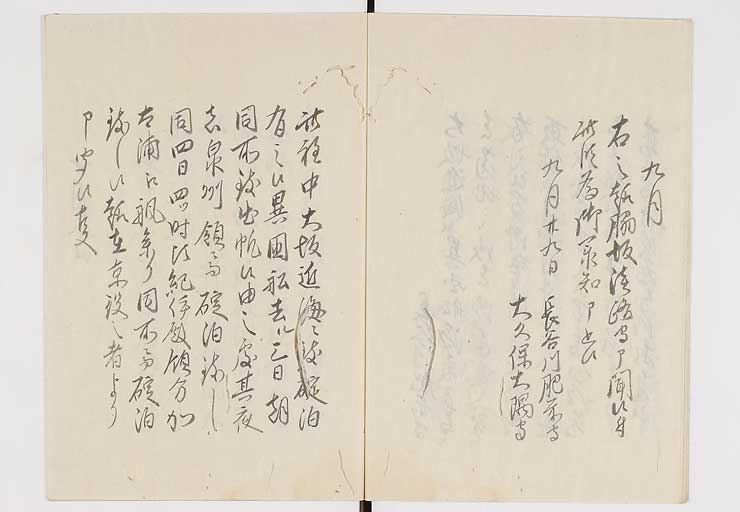 九月
右之趣脇坂淡路守申聞候付
此段為御承知申進候
九月廿九日 長谷川肥前守
大久保大隅守
此程中大坂近海ニ致碇泊
有之候異国船去ル三日朝
同所致出帆候由之処其夜
者泉州領ニ而碇泊致し
同四日四ツ時頃紀伊殿領分加
太浦江乗参り同所ニ而碇泊
致し候趣在京役之者より
申聞候事